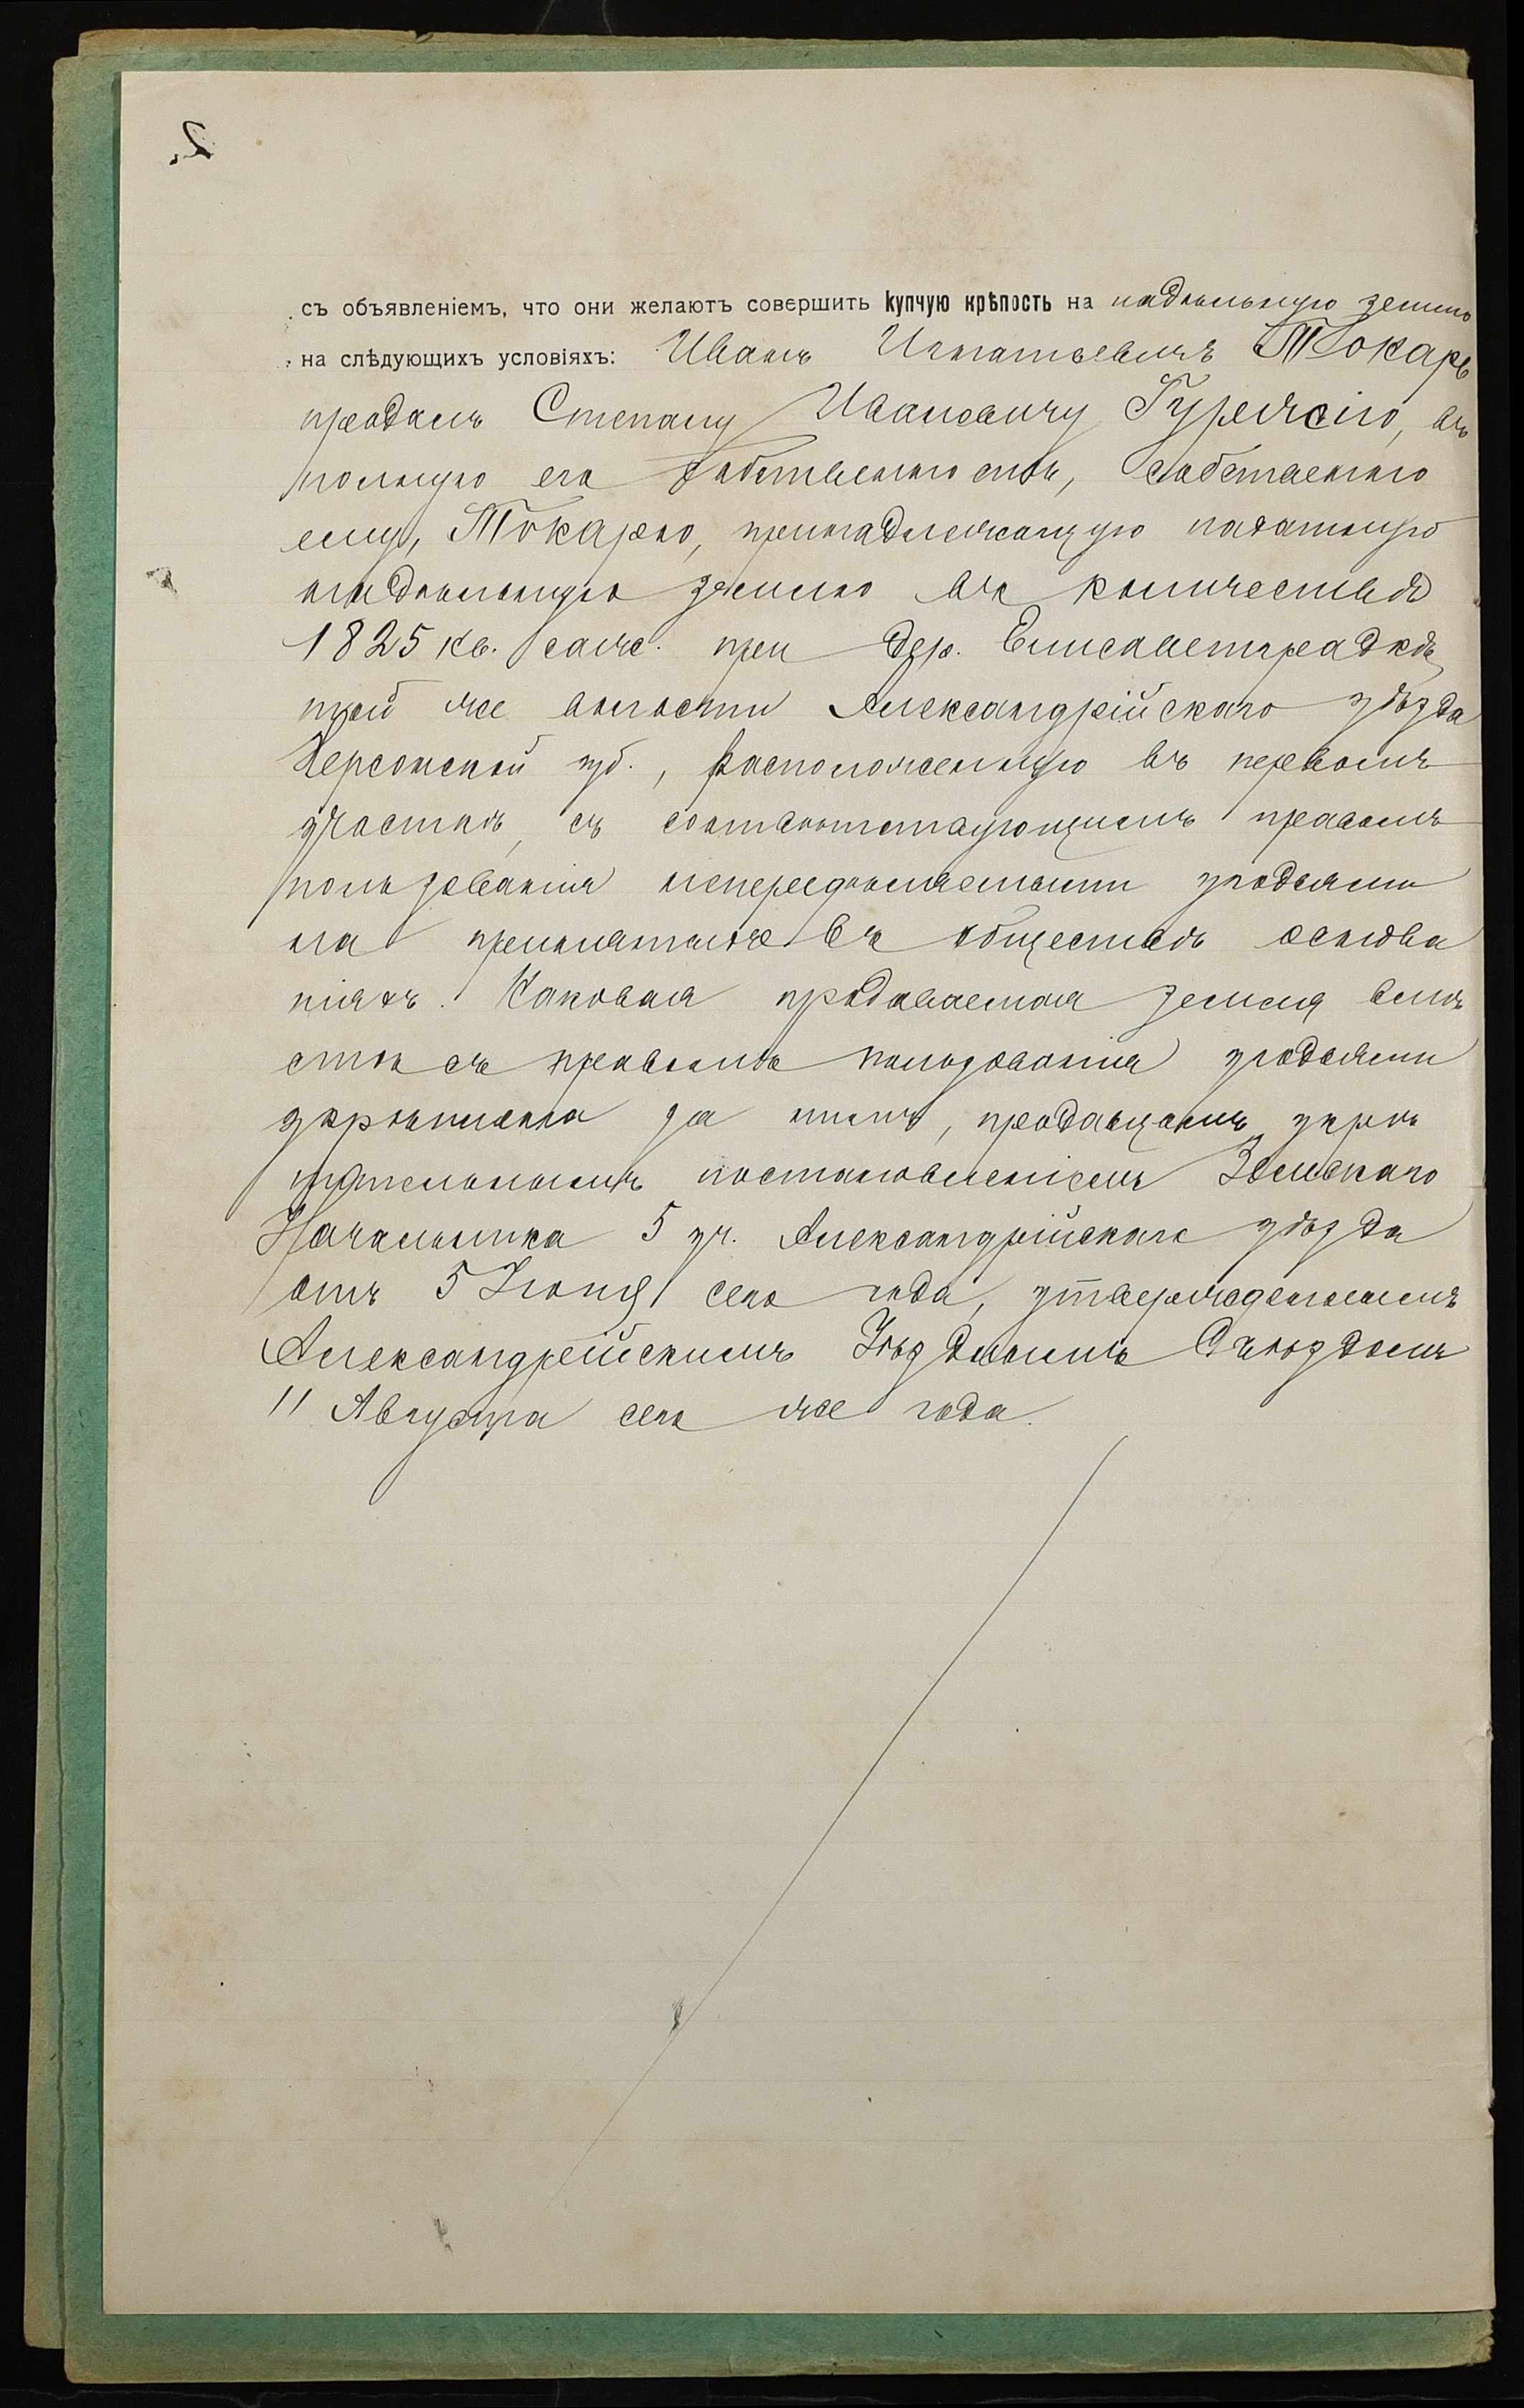 2.
съ объявленіемъ, что они желаютъ совершить купчую крѣпость на надѣльную землю
на слѣдующихъ условіяхъ: Иванъ Игнатьевичъ Токарь
продалъ Степану Ивановичу, въ
полную его собственность, собственно
ему, Токарю, принадлежащую пахатную
надѣльную землю въ количествѣ
1825 кв. саж. при дер. Елисаветградкѣ
той же волости Александрійскаго уѣзда
Херсонской губ., расположенную въ первомъ
участкѣ, съ соотвѣтствующимъ правомъ
пользованія непередѣляемыми угодьями
на принятыхъ въ обществѣ основа
ніяхъ. Каковая продаваемая земля вмѣ
стѣ съ правомъ пользованія угодьями
укрѣплена за нимъ, продавцомъ, укрѣ
пительнымъ постановленіемъ Земскаго
Начальника 5 уч. Александрійскаго уѣзда
отъ 5 Іюня сего года, утвержденнымъ
Александрійскимъ Уѣзднымъ Съѣздомъ
11 Августа сего же года.